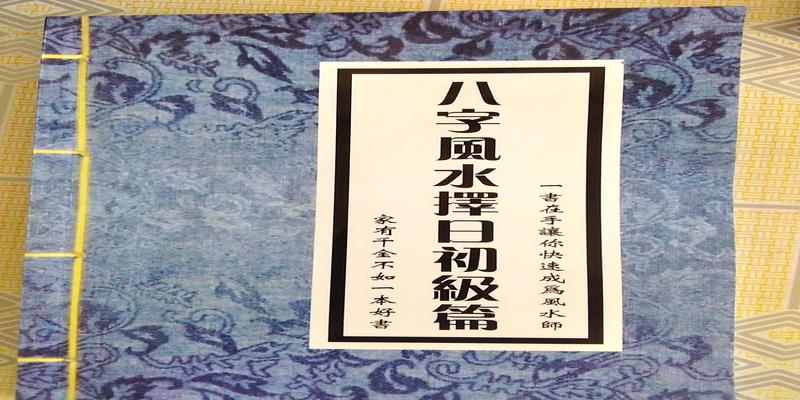 一書在手讓你快速成為風水師
八字風水擇日初級篇
家有千金不如一本好書